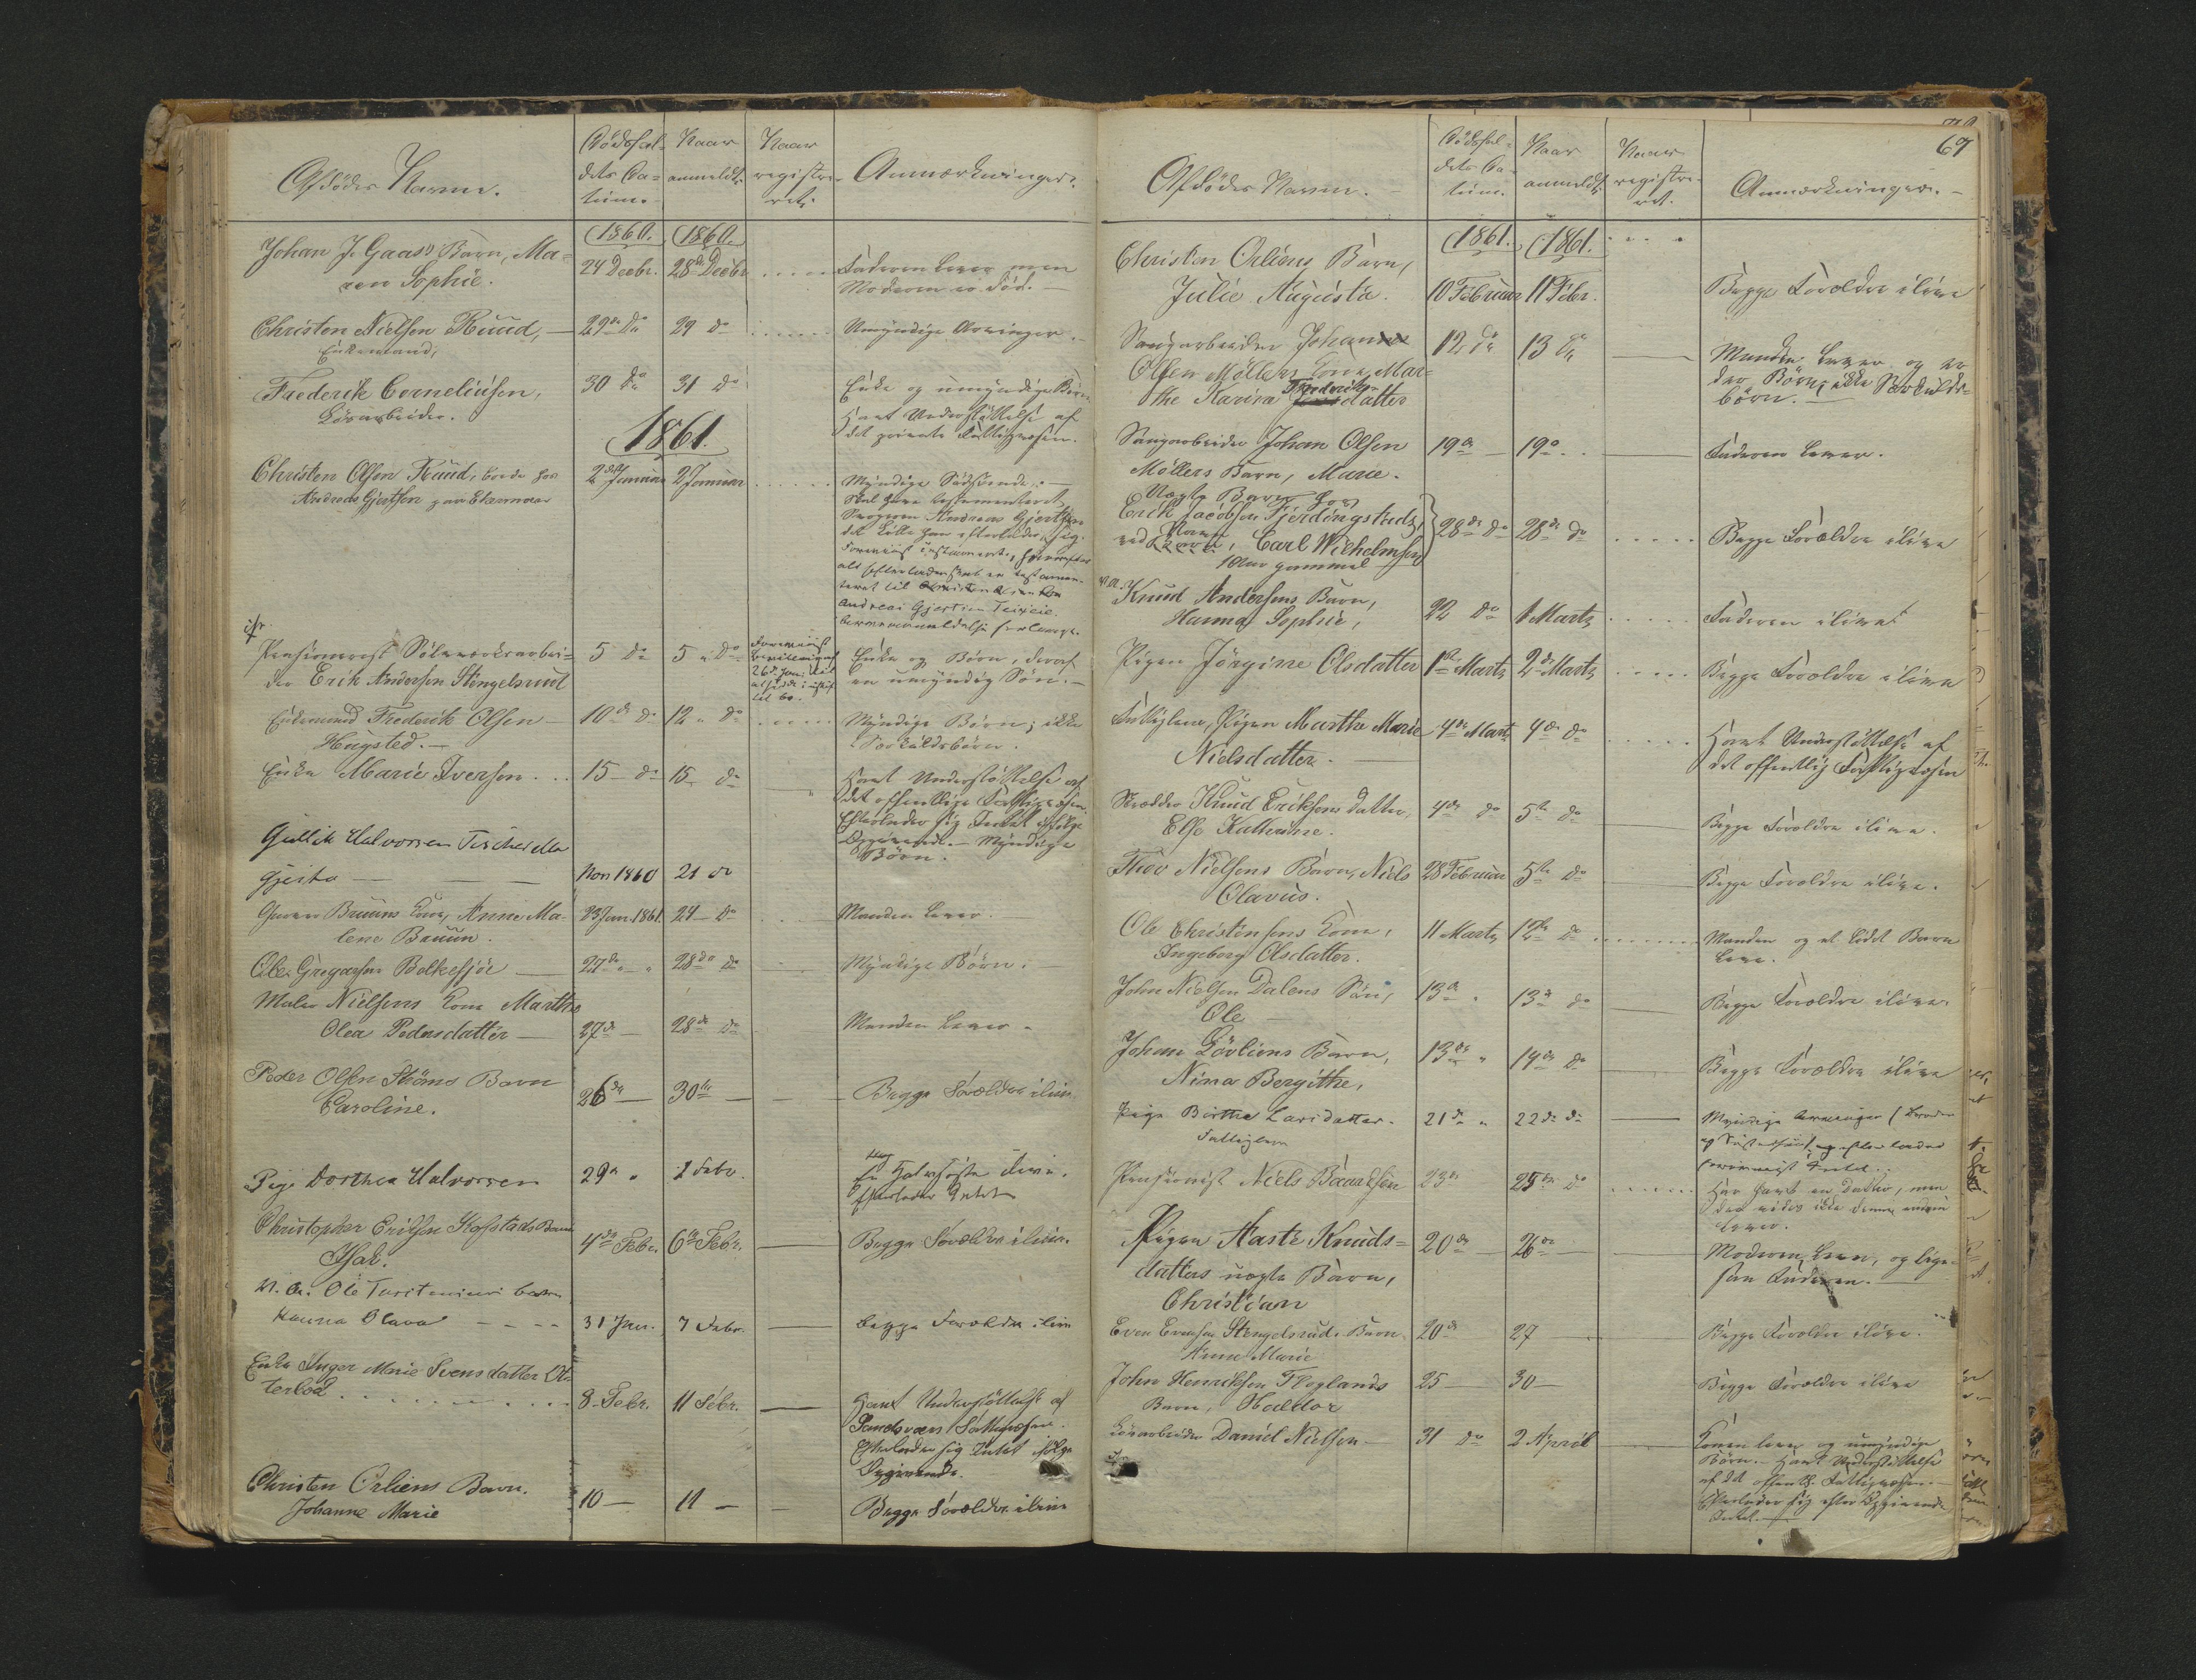 Afdödes Navn.
Dödsfal-
dets Da-
tum.
Naar
anmeldt.
Naar
registre-
ret.
Anmærkninger.
1860.
1860.
Johan J. Gaas's Barn, Ma-
ren Sophie.
24 Decbr.
28de Decbr
Faderen lever men
Moderen er död.
Christen Nielsen Ruud,
Enkemand,
29de do
29 do
Umyndige Arvinger.
Frederik Corneliusen,
Lösarbeider.
30 do
31 do
Enke og umyndige Börn
Havt Understöttelse af
det private Fattigvæsen.
1861.
Christen Olsen Ruud, boede hos
Andreas Gjertsen paa
2den Januar
2 Januar
Myndige Sødskende.
Skal have testamenteret
Andreas Gjertsen
det Lille han efterlader sig.
Andreas Gjertsen
Pensioneret Sölvværksarbei-
der Erik Andersen Stengelsrud
5 do
5 do
26de Jan.
Enke og Börn, deraf
en umyndig Sön.
Enkemand Frederik Olsen
Hugsted.
10de do
12 do
Myndige Börn; ikke
Særkuldsbörn.
Enke Marie Iversen
15 do
15 do
Havt Understöttelse af
det offentlige Fattigvæsen.
Efterlader sig Intet ifölge
Opgivende. Myndige
Börn.
Gullik Halvorsen
Gjesta
Nov 1860
21 do
Bruuns Kone, Anne Ma-
lene Bruun.
23 Jan. 1861.
24 do
Manden lever.
Ole Gregersen Bolkesjöe
27de
28de do
Myndige Börn.
Maler Nielsens Kone Marthe
Olea Pedersdatter
27de
28de do
Manden lever.
Peder Olsen Ströms Barn
Caroline.
26de
30te
Begge Forældre ilive.
Pige Dorthea Halvorsen
29de
1 Febr.
En Halvsøster ilive.
Efterlader Intet
Christopher Eriksen Kofstads Barn
Isak.
4de Febr.
6te Febr.
Begge Forældre ilive.
N. A. Ole Barn
Hanna Olava
31 Jan.
7 Febr.
Begge Forældre ilive
Enke Inger Marie Svensdatter
8 Febr.
11 Febr.
Havt Understöttelse af
Sandsværs Fattigvæsen.
Efterlader sig Intet ifölge
Opgivende.
Christen Orliens Barn.
Johanne Marie
10
11
Begge Forældre ilive
67
Afdödes Navn.
Dödsfal-
dets Da-
tum.
Naar
anmeldt.
Naar
registre-
ret.
Anmærkninger.
1861.
1861.
Christen Orliens Barn,
Julie Augusta.
10 Februar
11 Febr.
Begge Forældre ilive
Johan
Olsen Möllers Kone, Mar-
the Karine Frederiks-
datter
12 do
13 do
Manden lever og er
der Börn; ikke Særkulds-
börn.
Johan Olsen
Möllers Barn, Marie.
19de
19de
Faderen lever.
Uægte Barn hos
Erik Jacobsen Fjerdingstad,
ved Navn, Carl Wilhelmsen
1 Aar gammel
28de do
28de do
Begge Forældre ilive
N.A. Knud Andersens Barn,
Hanna Sophie,
22 do
1 Marts
Faderen ilive
Pigen Jörgine Olsdatter
1ste Marts
2de Marts
Begge Forældre ilive
Fattiglem, Pigen Marthe Marie
Nielsdatter.
4de Marts
4de do
Havt Understöttelse af
det offentlig Fattigvæsen
Skrædder Knud Eriksens Datter,
Else Kathrine.
4de do
5te do
Begge Forældre ilive.
Thor Nielsens Barn, Niels
Olavus.
28 Februar
5te do
Begge Forældre ilive.
Ole Christensens Kone,
Ingeborg Olsdatter.
11 Marts
12te do
Manden og et Barn
lever.
John Nielsen Dalens Sön,
Ole
13de
13de do
Begge Forældre ilive.
Johan Lövliens Barn,
Nina Bergithe,
13de
14de do
Begge Forældre ilive
Pige Birthe Larsdatter.
Fattiglem
21de
22de do
Myndige Arvinger
Intet.
Pensionist Niels
23de
25de do
Har havt en Datter, men
lever.
Pigen Aaste Knuds-
datters uægte Barn,
Christian
20de
26de
Moderen lever, og lige-
saa Faderen.
Even Evensen Stengelsruds Barn
Anne Marie
20de
27
Begge Forældre ilive.
John Henriksen Floglands
Barn, Halvor
25
30
Begge Forældre ilive
Lösarbeider Daniel Nielsen
31 do
2 April
Konen lever og umyndige
Börn. Havt Understöttelse
af det offentl. Fattigvæsen.
Efterlader sig efter Opgivende
Intet.